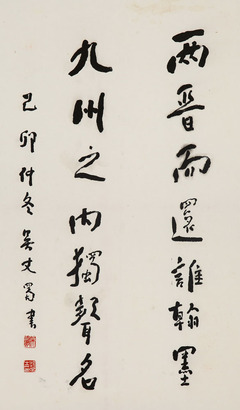 两晋而還誰翰墨
九州之内獨聲名
己卯仲冬吴丈蜀書